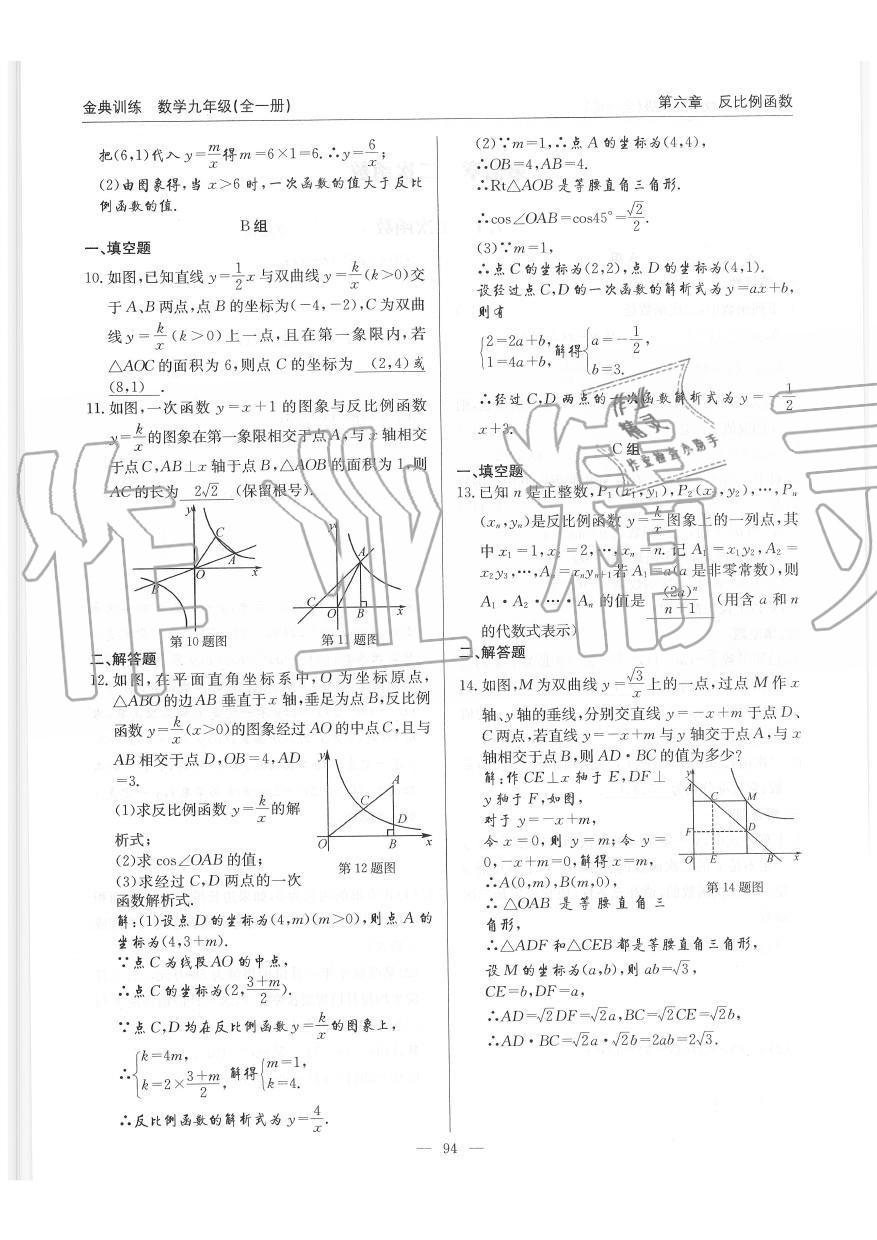 金典训练 数学九年级(全一册)
第六章 反比例函数
把(6,1)代入 y=m/x得m=6×1=6.∴y=6/x;
(2)由图象得,当 x>6 时,一次函数的值大于反比
例函数的值.
B组
一、填空题
10.如图,已知直线 y=1/2x 与双曲线 y=k/x(k>0)交
于 A、B 两点,点 B 的坐标为(-4,-2),C 为双曲
线 y=k/x(k>0)上一点,且在第一象限内,若
△AOC 的面积为 6,则点 C 的坐标为 (2,4)或
(8,1) .
11.如图,一次函数 y=x+1 的图象与反比例函数
y=k/x的图象在第一象限相交于点 A,与 x 轴相交
于点 C,AB⊥x 轴于点 B,△AOB 的面积为 1,则
AC 的长为 2√2 (保留根号).
y C A O x B
第 10 题图
y A C O B x
第 11 题图
二、解答题
12.如图,在平面直角坐标系中,O 为坐标原点,
△ABO 的边 AB 垂直于 x 轴,垂足为点 B,反比例
函数 y=k/x(x>0)的图象经过 AO 的中点 C,且与
AB 相交于点 D,OB=4,AD
=3.
(1)求反比例函数 y=k/x的解
析式;
(2)求 cos∠OAB 的值;
(3)求经过 C,D 两点的一次
函数解析式.
y A C D O B x
第 12 题图
解:(1)设点 D 的坐标为(4,m)(m>0),则点 A 的
坐标为(4,3+m).
∵点 C 为线段 AO 的中点,
∴点 C 的坐标为(2,3+m/2).
∵点 C,D 均在反比例函数 y=k/x的图象上,
∴{k=4m, k=2×3+m/2, 解得{m=1, k=4.
∴反比例函数的解析式为 y=4/x.
(2)∵m=1,∴点 A 的坐标为(4,4),
∴OB=4,AB=4.
∴Rt△AOB 是等腰直角三角形.
∴cos∠OAB=cos45°=√2/2.
(3)∵m=1,
∴点 C 的坐标为(2,2),点 D 的坐标为(4,1).
设经过点 C,D 的一次函数的解析式为 y=ax+b,
则有
{2=2a+b, 1=4a+b, 解得{a=-1/2, b=3.
∴经过 C,D 两点的一次函数解析式为 y=-1/2
x+3.
C组
一、填空题
13.已知 n 是正整数,P1(x1,y1),P2(x2,y2),…,Pn
(xn,yn)是反比例函数 y=k/x图象上的一列点,其
中 x1=1,x2=2,…,xn=n.记 A1=x1y2,A2=
x2y3,…,An=xnyn+1若 A1=a(a 是非零常数),则
A1·A2·…·An 的值是 (2a)^n/n-1 (用含 a 和 n
的代数式表示)
二、解答题
14.如图,M 为双曲线 y=√3/x上的一点,过点 M 作 x
轴、y 轴的垂线,分别交直线 y=-x+m 于点 D、
C 两点,若直线 y=-x+m 与 y 轴交于点 A,与 x
轴相交于点 B,则 AD·BC 的值为多少?
解:作 CE⊥x 轴于 E,DF⊥
y 轴于 F,如图,
对于 y=-x+m,
令 x=0,则 y=m;令 y=
0,-x+m=0,解得 x=m,
∴A(0,m),B(m,0),
∴△OAB 是等腰直角三
角形,
y A C M F D O E B x
第 14 题图
∴△ADF 和△CEB 都是等腰直角三角形,
设 M 的坐标为(a,b),则 ab=√3,
CE=b,DF=a,
∴AD=√2DF=√2a,BC=√2CE=√2b,
∴AD·BC=√2a·√2b=2ab=2√3.
— 94 —
作业精灵
作业
精灵
作业检查小助手